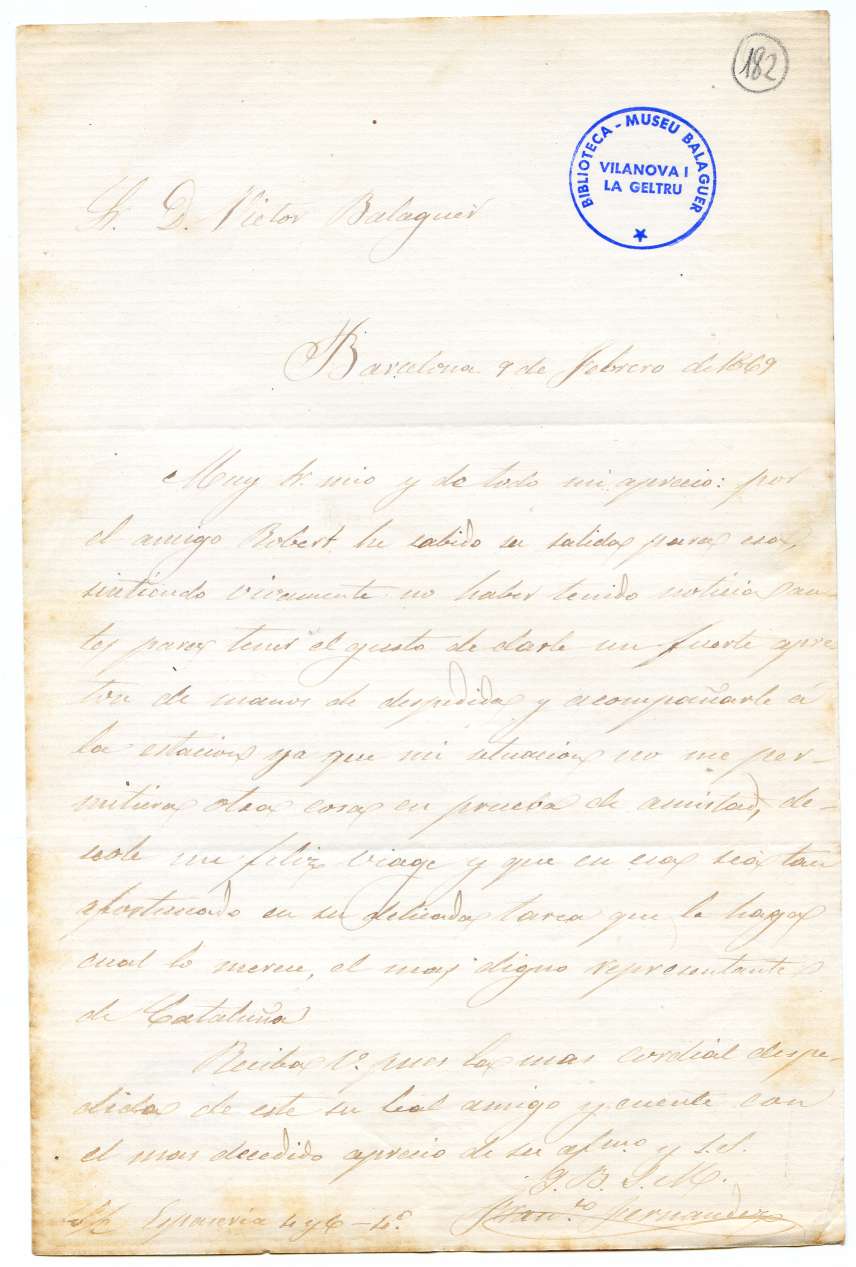 182
BIBLIOTECA - MUSEU BALAGUER
VILANOVA I
LA GELTRU
Sr. D. Victor Balaguer
Barcelona 9 de Febrero de 1869
Muy Sr. mio y de todo mi aprecio: por
el amigo Robert he sabido su salida para esa,
sintiendo vivamente no haber tenido noticia an-
tes para tener el gusto de darle un fuerte apre
ton de manos de despedida y acompañarle á
la estacion ya que mi situacion no me per-
mitiera otra cosa en prueba de amistad, de-
seole un feliz viage y que en esa sea tan
afortunado en su delicada tarea que le haga
cual lo merece, el mas digno representante
de Cataluña
Reciba V. pues la mas cordial despe-
dida de este su leal amigo y cuente con
el mas decedido aprecio de su afmo. y S.S.
Q. B. S. M.
Franco. Fernandez
Espaseria 4 y 6 - 4º